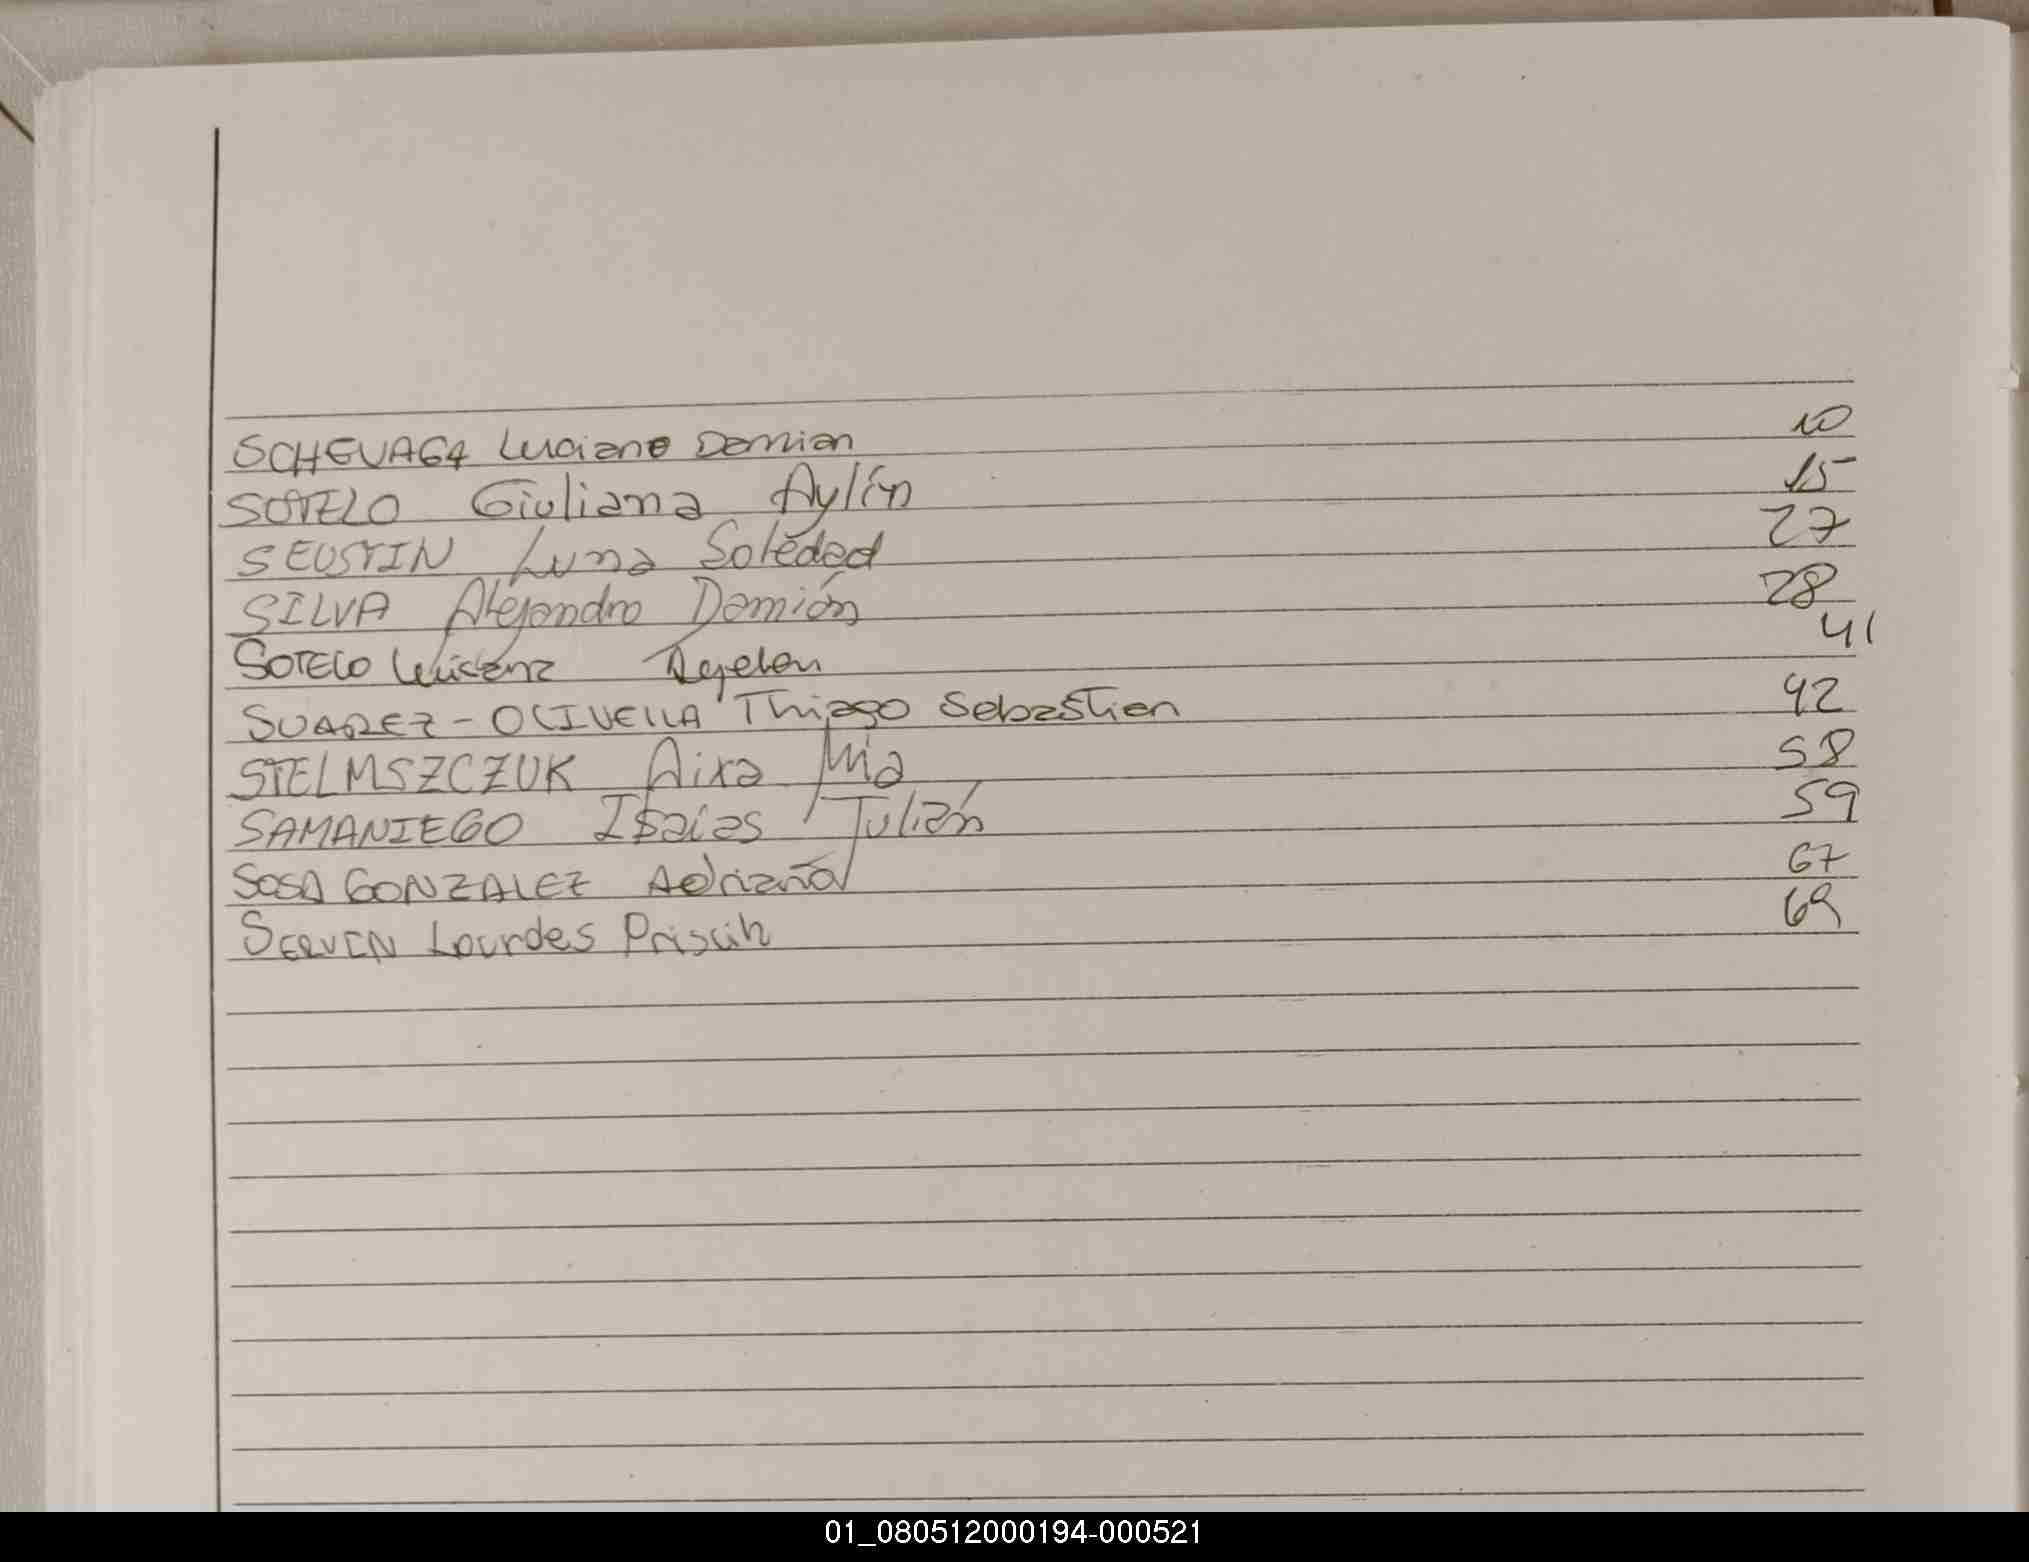 SCHEVAGA Luciano Damian 10
SOTELO Giuliana Aylín 15
SEUSTIN Luna Soledad 27
SILVA Alejandro Damián 28
SOTELO Ayelen 41
SUAREZ-OLIVELLA Thiago Sebastian 42
STELMSZCZUK Aixa Mia 58
SAMANIEGO Isaías Julián 59
SOSA GONZALEZ Adriana 67
SERVIN Lourdes 69
01_080512000194-000521